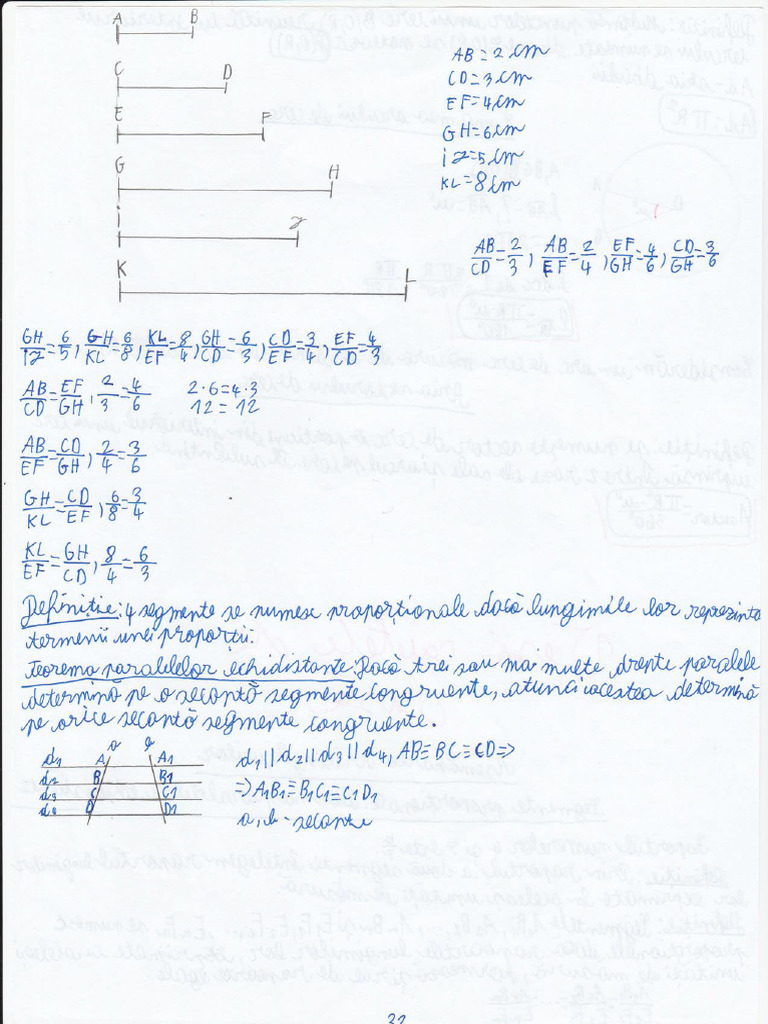 A B
AB=2cm
C D
CD=3cm
E F
EF=4cm
G H
GH=6cm
i J
iJ=5cm
K L
KL=8cm
AB/CD=2/3, AB/EF=2/4, EF/GH=4/6, CD/GH=3/6
GH/IJ=6/5, GH/KL=6/8, KL/EF=8/4, GH/CD=6/3, CD/EF=3/4, EF/CD=4/3
AB/CD=EF/GH, 2/3=4/6 2·6=4·3
12=12
AB/EF=CD/GH, 2/4=3/6
GH/KL=CD/EF, 6/8=3/4
KL/EF=GH/CD, 8/4=6/3
Definiție: 4 segmente se numesc proporționale dacă lungimile lor reprezintă
termenii unei proporții.
Teorema paralelelor echidistante: Dacă trei sau mai multe drepte paralele
determină pe o secantă segmente congruente, atunci acestea determină
pe orice secantă segmente congruente.
a b
d1 A A1
d2 B B1
d3 C C1
d4 D D1
d1||d2||d3||d4, AB≡BC≡CD=>
=>A1B1≡B1C1≡C1D1
a, b - secante
32